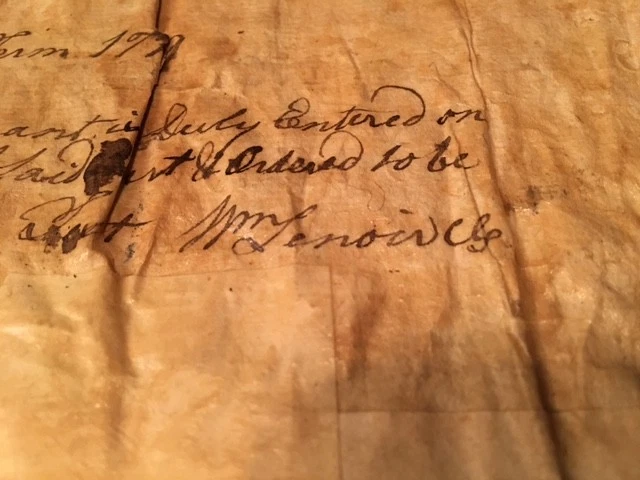 Term 177
ant is Duly Entered on
Said & Ordered to be
Wm Lenoir Clk